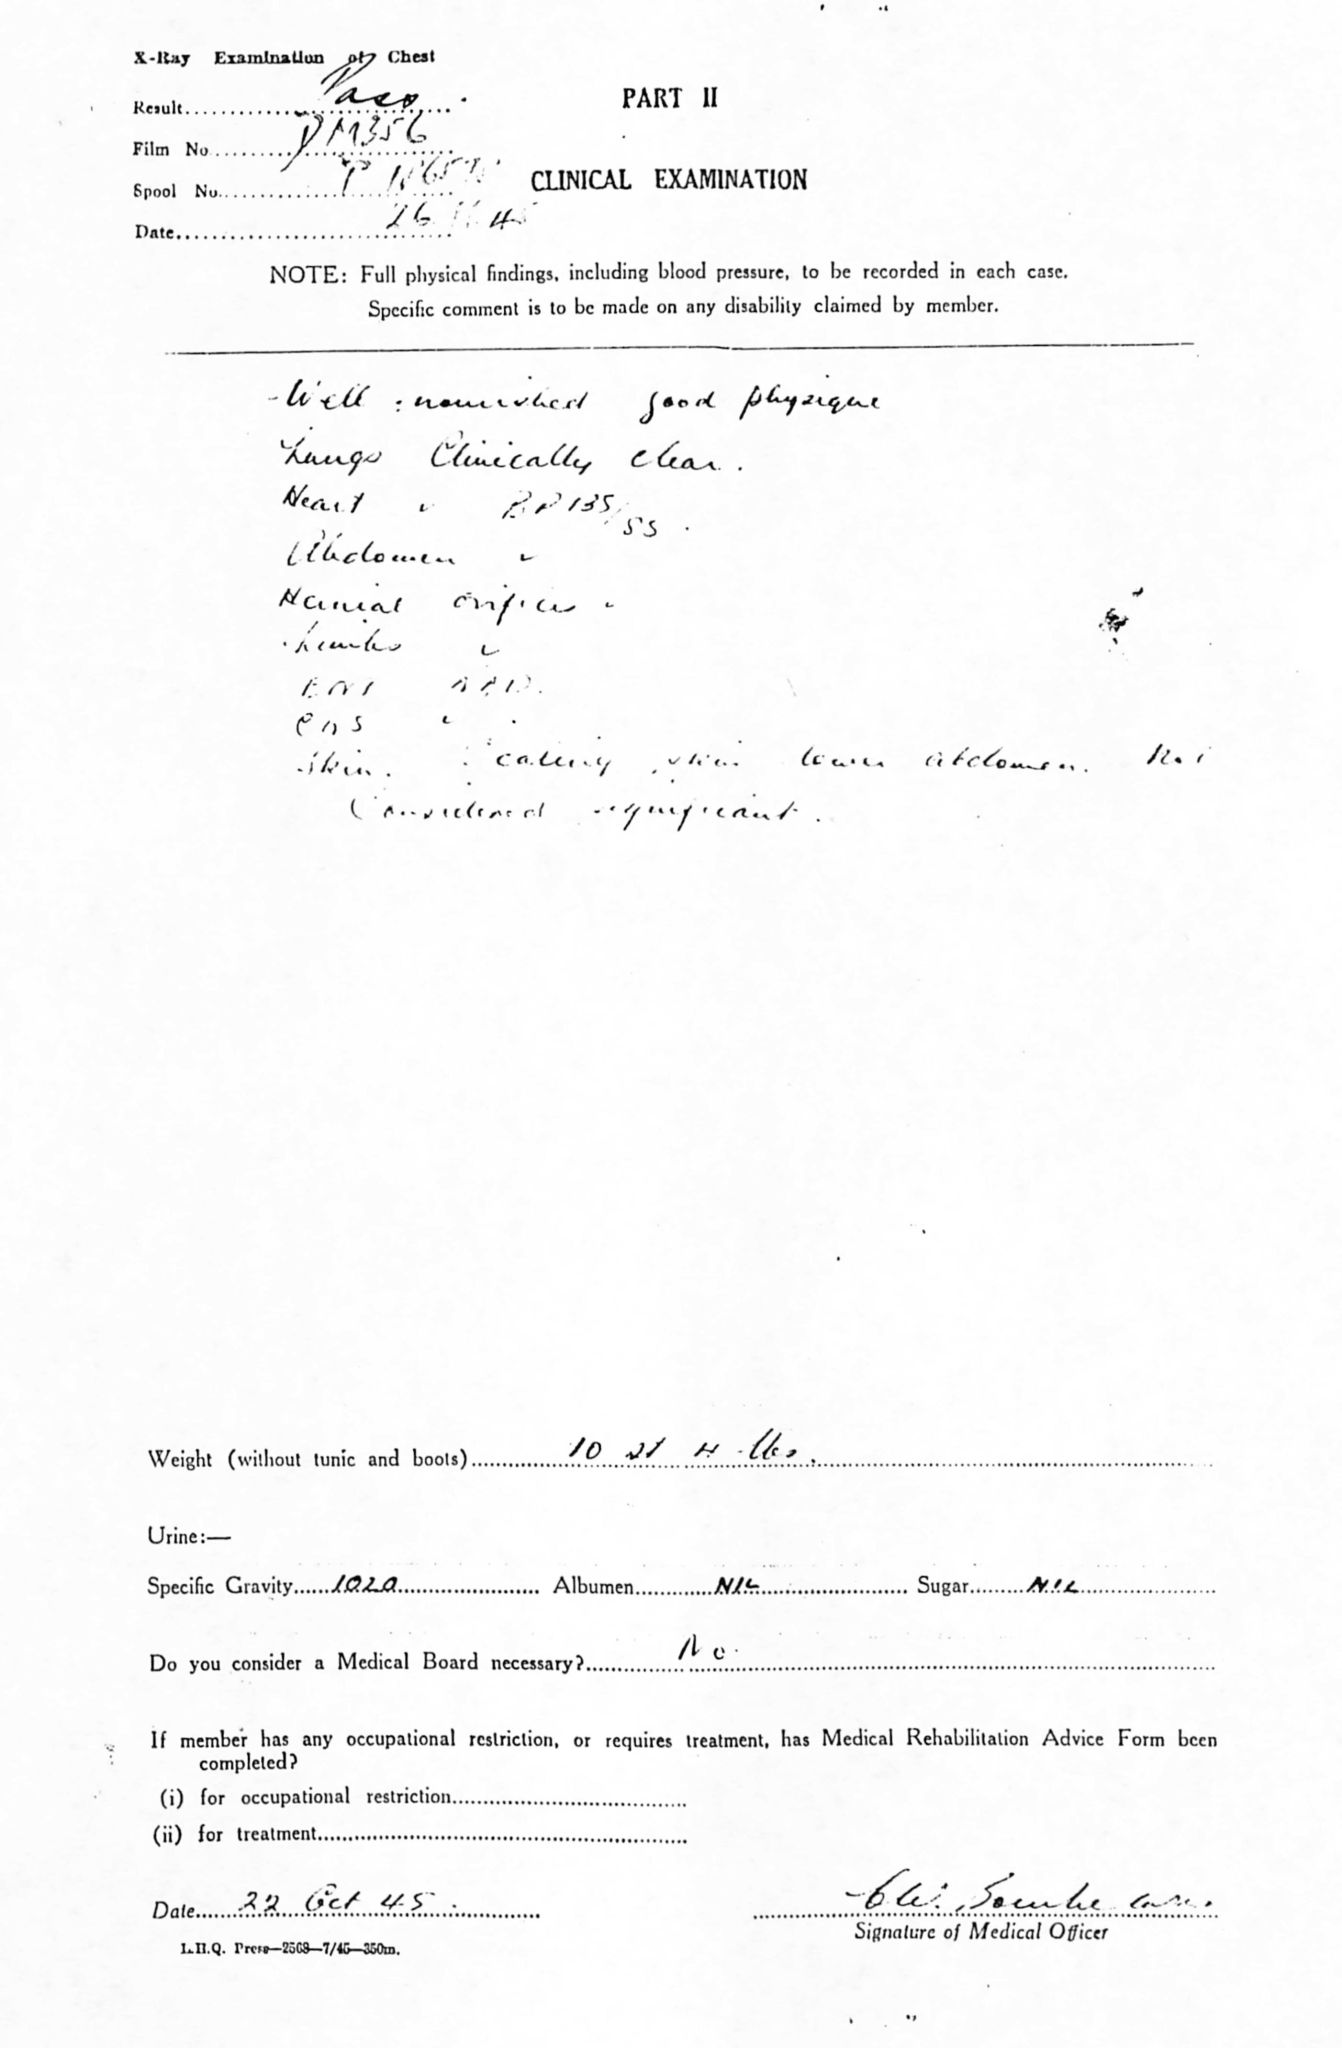 X-Ray Examination of Chest
Result
Film No. DM356
Spool No.
Date 26 45
PART II
CLINICAL EXAMINATION
NOTE: Full physical findings, including blood pressure, to be recorded in each case.
Specific comment is to be made on any disability claimed by member.
Well nourished good physique
Lungs Clinically clear.
Heart " BP 135/55.
Abdomen "
Hernial orifices "
Limbs "
ENT NAD.
CNS "
Skin. Scaling skin lower abdomen. Not
Considered significant.
Weight (without tunic and boots) 10 st 4 lbs.
Urine:—
Specific Gravity 1020 Albumen NIL Sugar NIL
Do you consider a Medical Board necessary? No
If member has any occupational restriction, or requires treatment, has Medical Rehabilitation Advice Form been
completed?
(i) for occupational restriction
(ii) for treatment
Date 22 Oct 45.
Signature of Medical Officer
L.H.Q. Press—2568—7/45—350m.